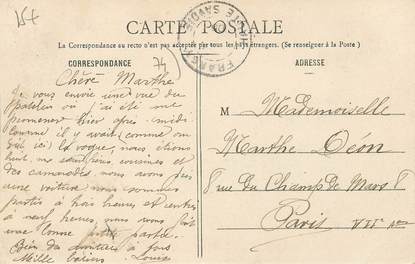 15€
CARTE POSTALE
La Correspondance au recto n'est pas acceptée par tous les pays étrangers. (Se renseigner à la Poste)
CORRESPONDANCE
ADRESSE
HAUTE SAVOIE
74
Chère Marthe
Je vous envoie une vue du
où j'ai été me
promener hier après-midi
comme il y avait (comme on
dit ici) la vogue, nous étions
huit, mes cousines et
des camarades, nous avons pris
une voiture, nous sommes
partis à trois heures et rentrés
à neuf heures, nous avons fait
une bonne petite partie.
Bien des à tous
Mille baisers Louise
M Mademoiselle
Marthe Déon
8 rue du Champ de Mars 8
Paris VII